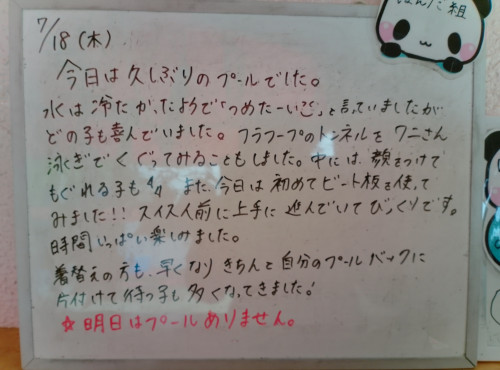 ぱんだ組
7/18(木)
今日は久しぶりのプールでした。
水は冷たかったようで「つめたーい」と言っていましたが
どの子も喜んでいました。フラフープのトンネルをワニさん
泳ぎでくぐってみることもしました。中には、顔をつけて
もぐれる子も!! また、今日は初めてビート板を使って
みました!! スイスイ前に上手に進んでいてびっくりです。
時間いっぱい楽しみました。
着替えの方も、早くなりきちんと自分のプールバックに
片付けて待つ子も多くなってきました!
☆明日はプールありません。